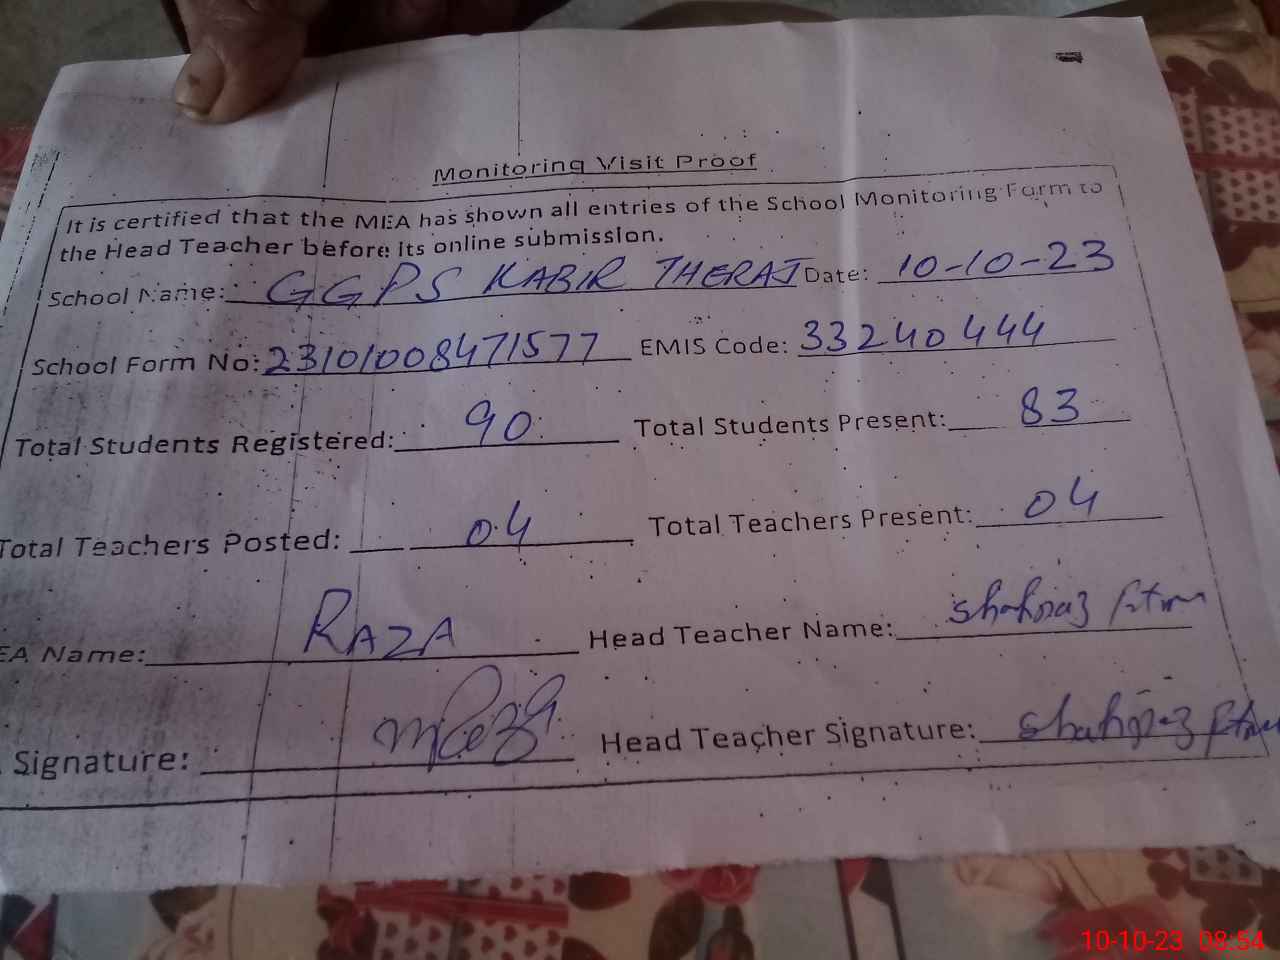 Monitoring Visit Proof
It is certified that the MEA has shown all entries of the School Monitoring Form to
the Head Teacher before its online submission.
School Name: GGPS KABIR THERAJ Date: 10-10-23
School Form No: 23101008471577 EMIS Code: 33240444
Total Students Registered: 90 Total Students Present: 83
Total Teachers Posted: 04 Total Teachers Present: 04
EA Name: RAZA Head Teacher Name: Shahnaz
Signature: Head Teacher Signature: Shahnaz
10-10-23 08:54